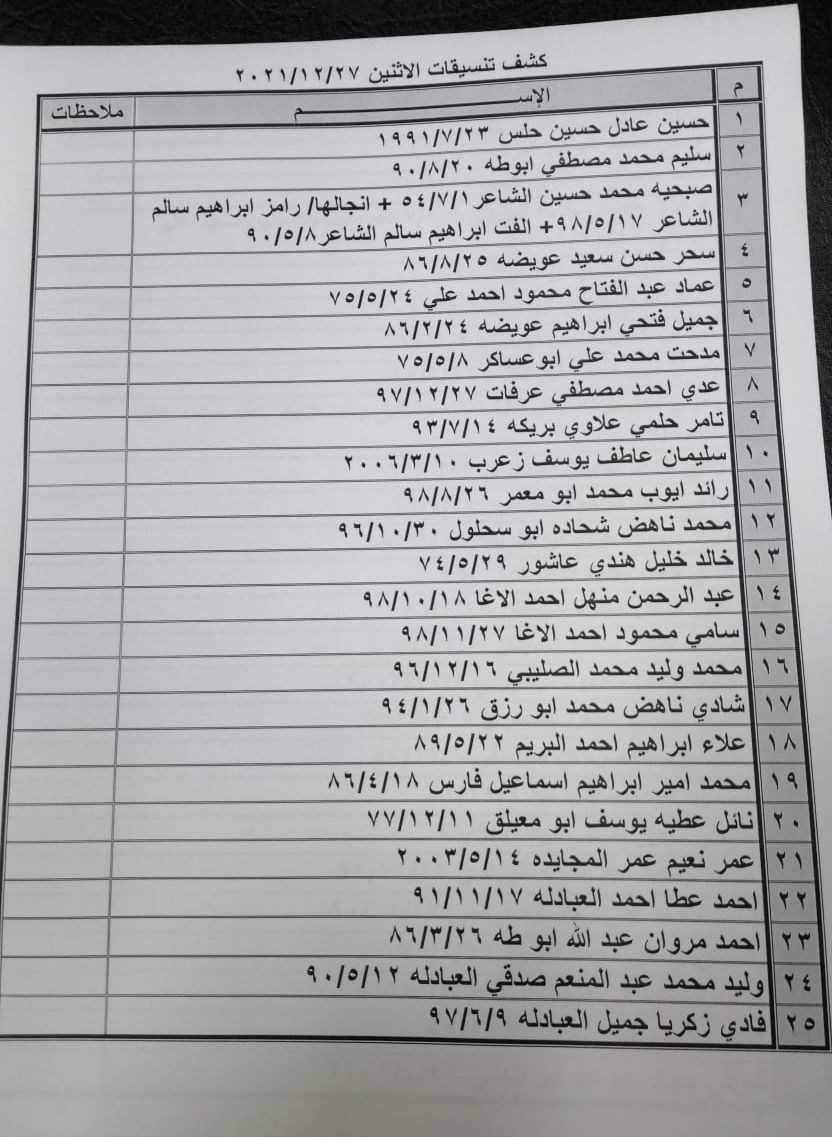 كشف تنسيقات الاثنين ٢٠٢١/١٢/٢٧
م الإســـــــم ملاحظات
١ حسين عادل حسين حلس ١٩٩١/٧/٢٣
٢ سليم محمد مصطفي ابوطه ٩٠/٨/٢٠
٣ صبحيه محمد حسين الشاعر ٥٤/٧/١ + انجالها/ رامز ابراهيم سالم
الشاعر ٩٨/٥/١٧+ الفت ابراهيم سالم الشاعر٩٠/٥/٨
٤ سحر حسن سعيد عويضه ٨٦/٨/٢٥
٥ عماد عبد الفتاح محمود احمد علي ٧٥/٥/٢٤
٦ جميل فتحي ابراهيم عويضه ٨٦/٢/٢٤
٧ مدحت محمد علي ابوعساكر ٧٥/٥/٨
٨ عدي احمد مصطفي عرفات ٩٧/١٢/٢٧
٩ تامر حلمي علاوي بريكه ٩٣/٧/١٤
١٠ سليمان عاطف يوسف زعرب ٢٠٠٦/٣/١٠
١١ رائد ايوب محمد ابو معمر ٩٨/٨/٢٦
١٢ محمد ناهض شحاده ابو سحلول ٩٦/١٠/٣٠
١٣ خالد خليل هندي عاشور ٧٤/٥/٢٩
١٤ عبد الرحمن منهل احمد الاغا ٩٨/١٠/١٨
١٥ سامي محمود احمد الاغا ٩٨/١١/٢٧
١٦ محمد وليد محمد الصليبي ٩٦/١٢/١٦
١٧ شادي ناهض محمد ابو رزق ٩٤/١/٢٦
١٨ علاء ابراهيم احمد البريم ٨٩/٥/٢٢
١٩ محمد امير ابراهيم اسماعيل فارس ٨٦/٤/١٨
٢٠ نائل عطيه يوسف ابو معيلق ٧٧/١٢/١١
٢١ عمر نعيم عمر المجايده ٢٠٠٣/٥/١٤
٢٢ احمد عطا احمد العبادله ٩١/١١/١٧
٢٣ احمد مروان عبد الله ابو طه ٨٦/٣/٢٦
٢٤ وليد محمد عبد المنعم صدقي العبادله ٩٠/٥/١٢
٢٥ فادي زكريا جميل العبادله ٩٧/٦/٩